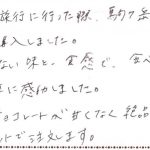 旅行に行った際、駒ヶ岳
購入しました。
ない味と、食感で、食べ
に感動しました。
チョコレートが甘くなく絶品
ントで注文します。